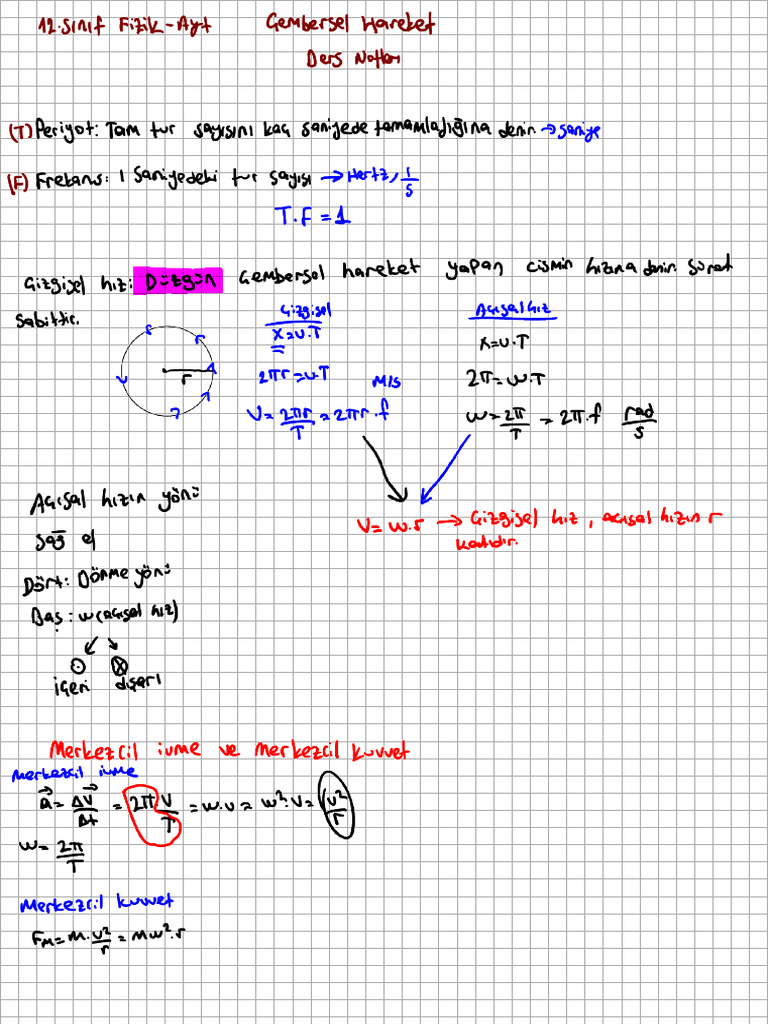 12.Sınıf Fizik-Ayt Çembersel Hareket
Ders Notları
(T) Periyot: Tam tur sayısını kaç saniyede tamamladığına denir → saniye
(F) Frekans: 1 Saniyedeki tur sayısı → Hertz, 1/s
T.F = 1
Çizgisel hız: Düzgün Çembersel hareket yapan cismin hızına denir. Sürat
sabittir.
Çizgisel
x=v.T
2πr=v.T
m/s
V=2πr/T=2πr.f
r
Açısal hız
x=v.T
2π=w.T
w=2π/T=2π.f rad/s
V=w.r → Çizgisel hız, açısal hızın r
katıdır.
Açısal hızın yönü
Sağ el
Dört: Dönme yönü
Baş: w(açısal hız)
⊙ ⊗
içeri dışarı
Merkezcil ivme ve Merkezcil kuvvet
Merkezcil ivme
a=ΔV/Δt = 2π V/T = w.v = w².v = v²/r
w=2π/T
Merkezcil kuvvet
Fm=m.v²/r=mw².r